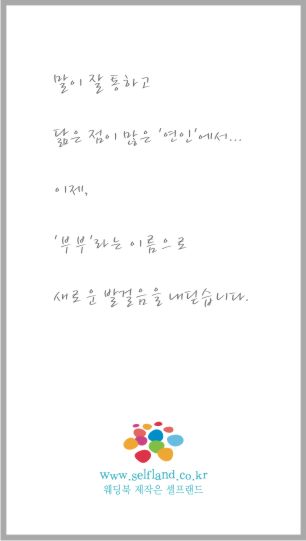 말이 잘 통하고
닮은 점이 많은 '연인'에서...
이제,
'부부'라는 이름으로
새로운 발걸음을 내딛습니다.
www.selfland.co.kr
웨딩북 제작은 셀프랜드